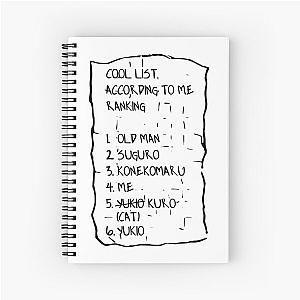 COOL LIST.
ACCORDING TO ME
RANKING
1. OLD MAN
2. SUGURO
3. KONEKOMARU
4. ME
5. YUKIO KURO
(CAT)
6. YUKIO